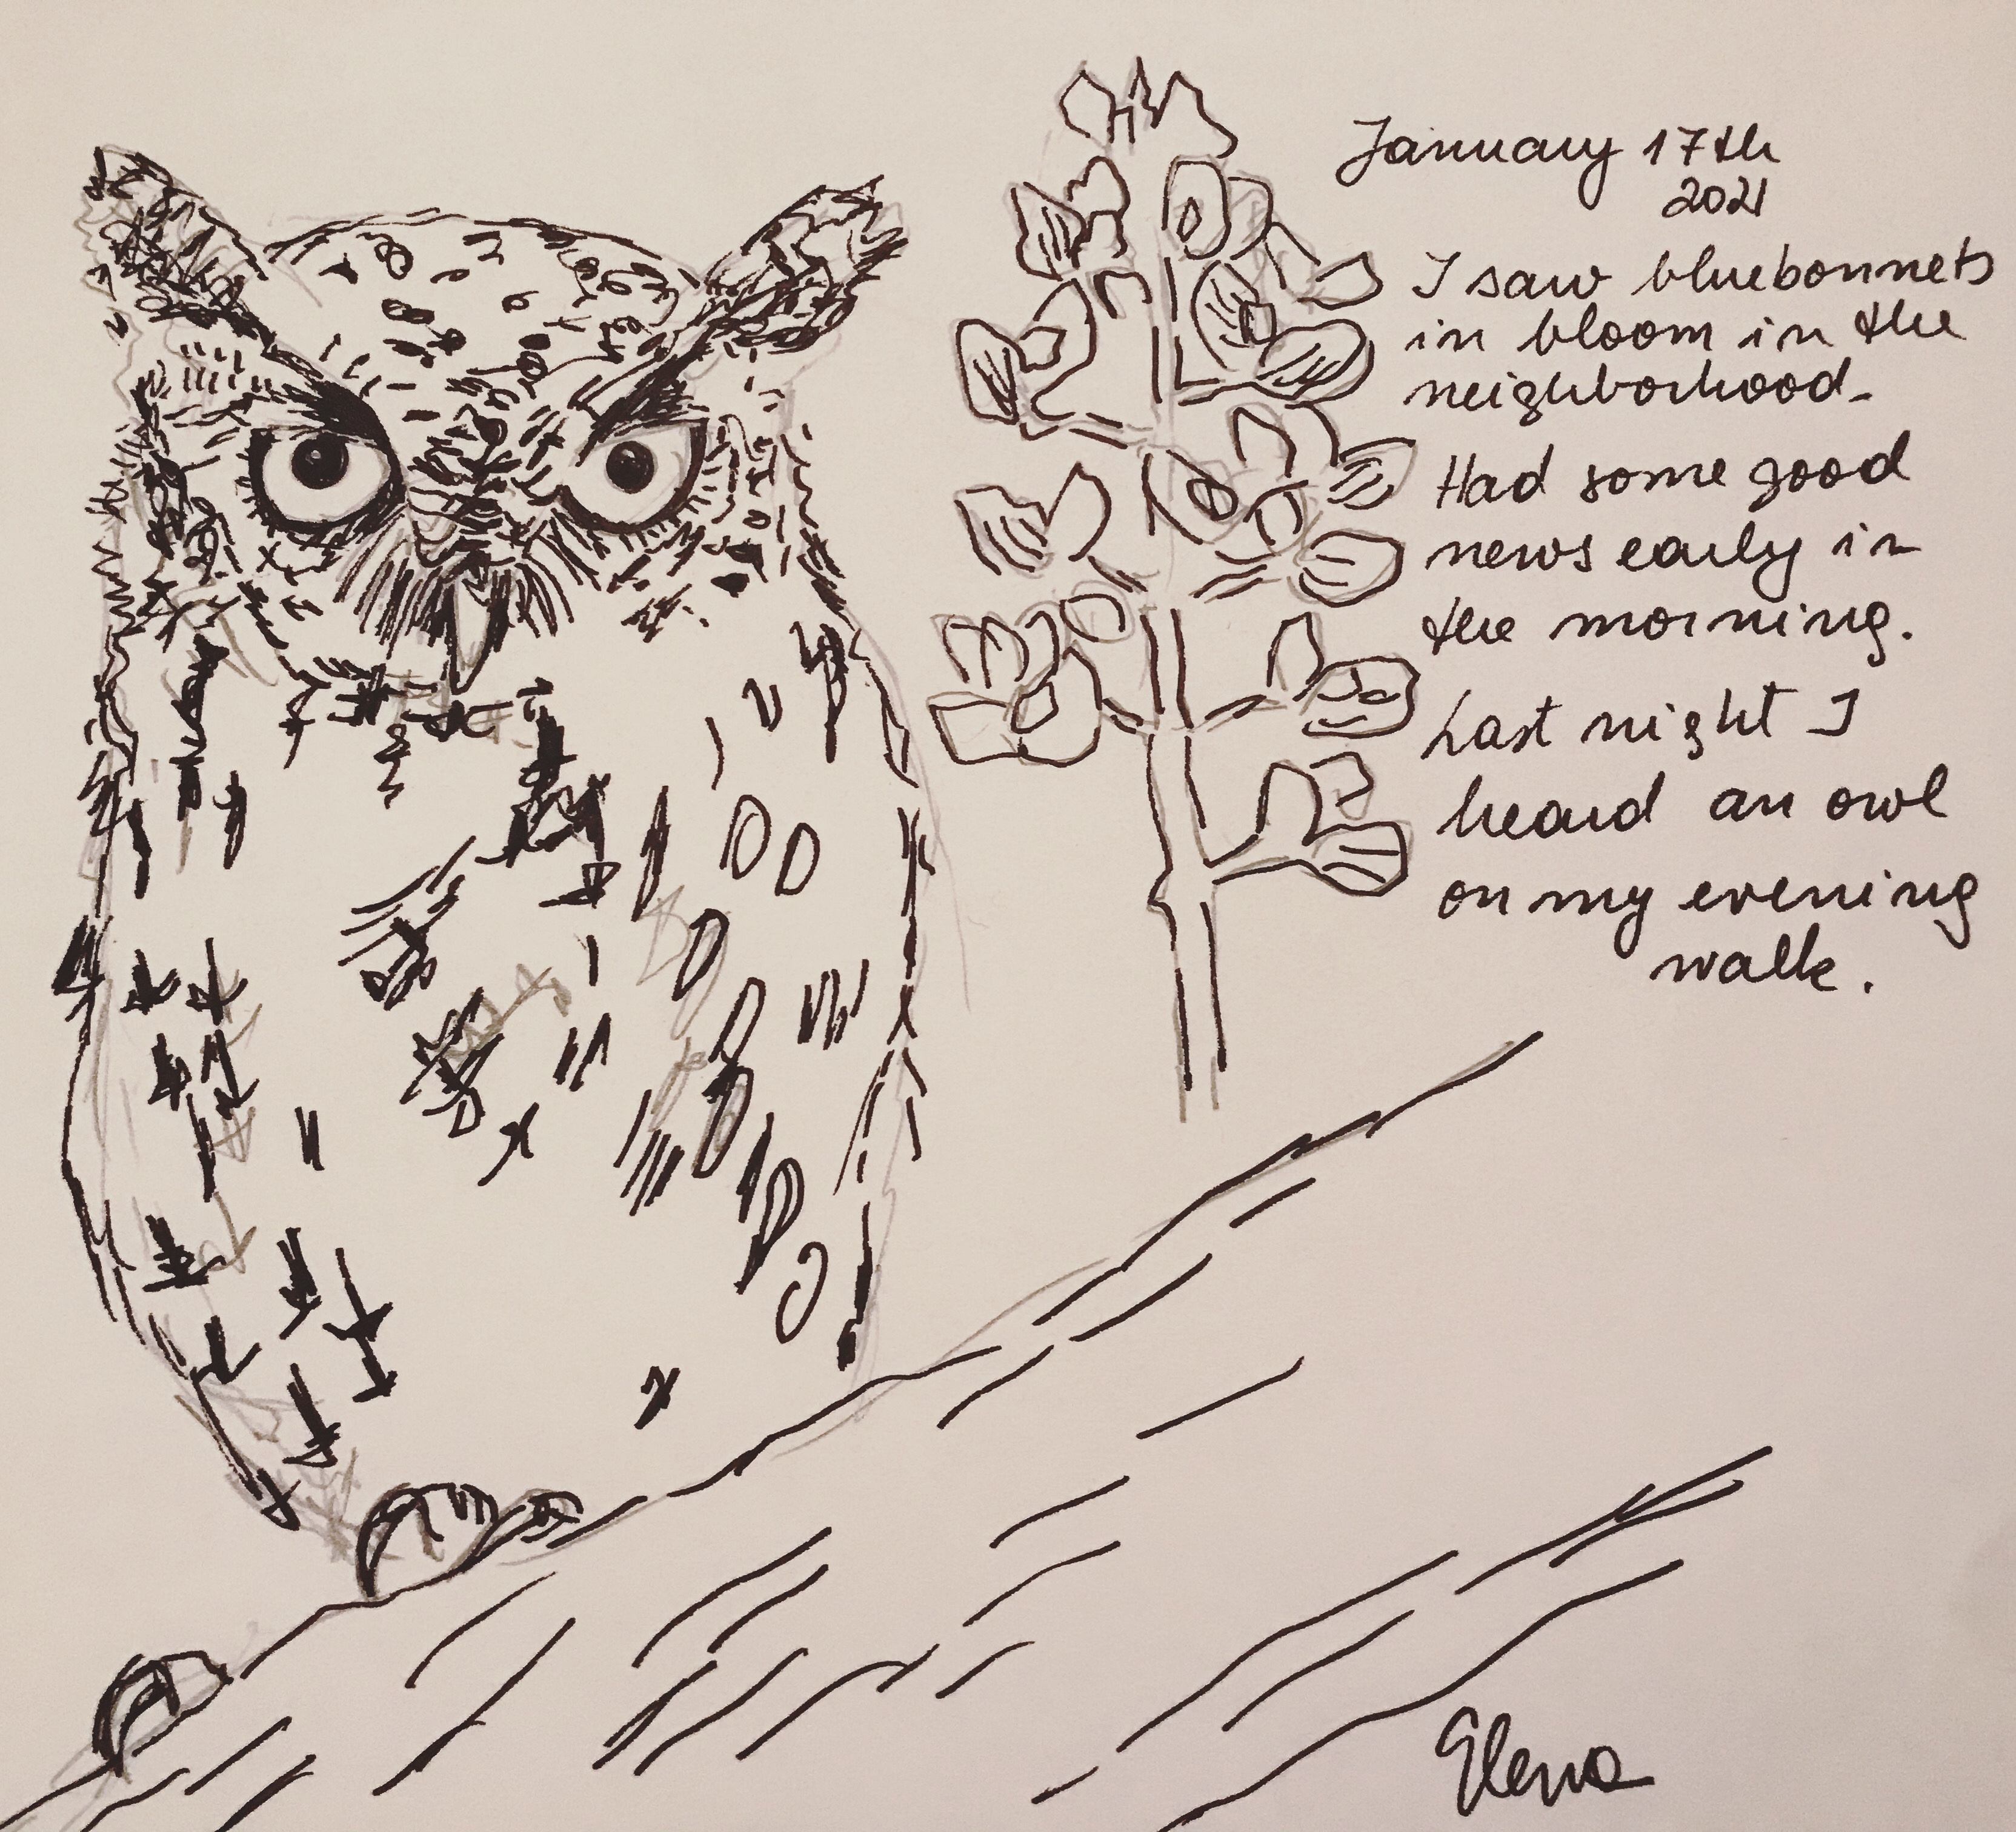 January 17th
2021
I saw bluebonnets
in bloom in the
neighborhood.
Had some good
news early in
the morning.
Last night I
heard an owl
on my evening
walk.
Elena